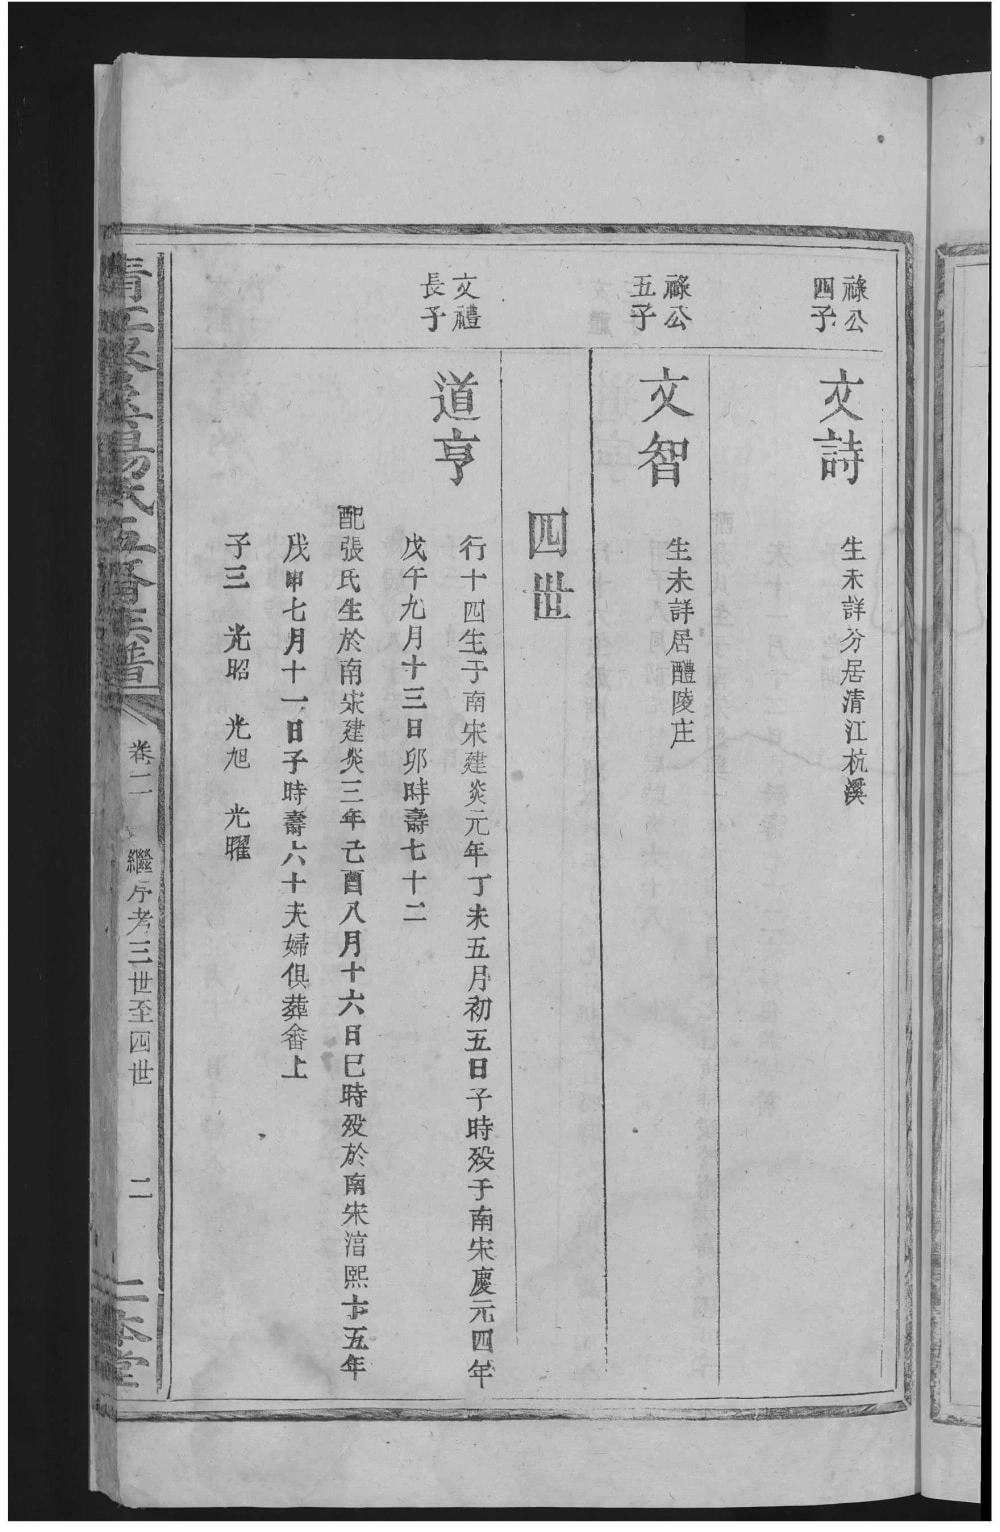 祿公
四子
文詩
生未詳分居清江杭溪
祿公
五子
文智
生未詳居醴陵庄
四世
文禮
長子
道亨
行十四生于南宋建炎元年丁未五月初五日子時殁于南宋慶元四年
戊午九月十三日卯時壽七十二
配張氏生於南宋建炎三年己酉八月十六日巳時殁於南宋淳熙十五年
戊申七月十一日子時壽六十夫婦俱葬畬上
子三 光昭 光旭 光曜
楊氏五脩族譜
卷二
繼序考三世至四世
二